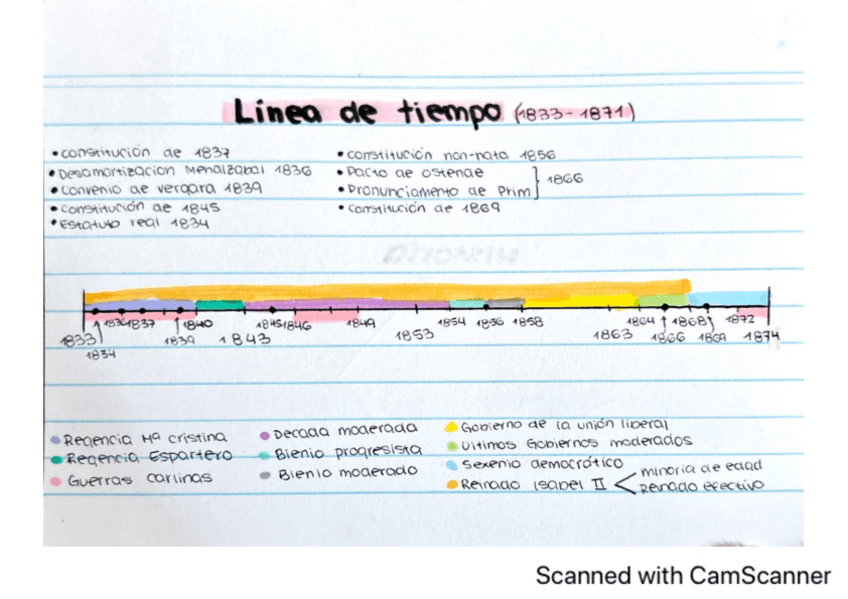 Línea de tiempo (1833-1871)
• constitución de 1837
• Desamortización Mendizabal 1836
• Convenio de vergara 1839
• constitución de 1845
• Estatuto real 1834
• constitución non-nata 1856
• Pacto de ostende
• Pronunciamento de Prim
1866
• constitución de 1869
1833 1834 1836 1837 1839 1840 1843 1845 1846 1849 1853 1854 1856 1858 1863 1864 1866 1868 1869 1872 1874
Regencia Mª cristina
Regencia Espartero
Guerras carlinas
Decada moderada
Bienio progresista
Bienio moderado
Gobierno de la unión liberal
Ultimos Gobiernos moderados
Sexenio democrático
Reinado Isabel II < minoria de edad
Reinado efectivo
Scanned with CamScanner